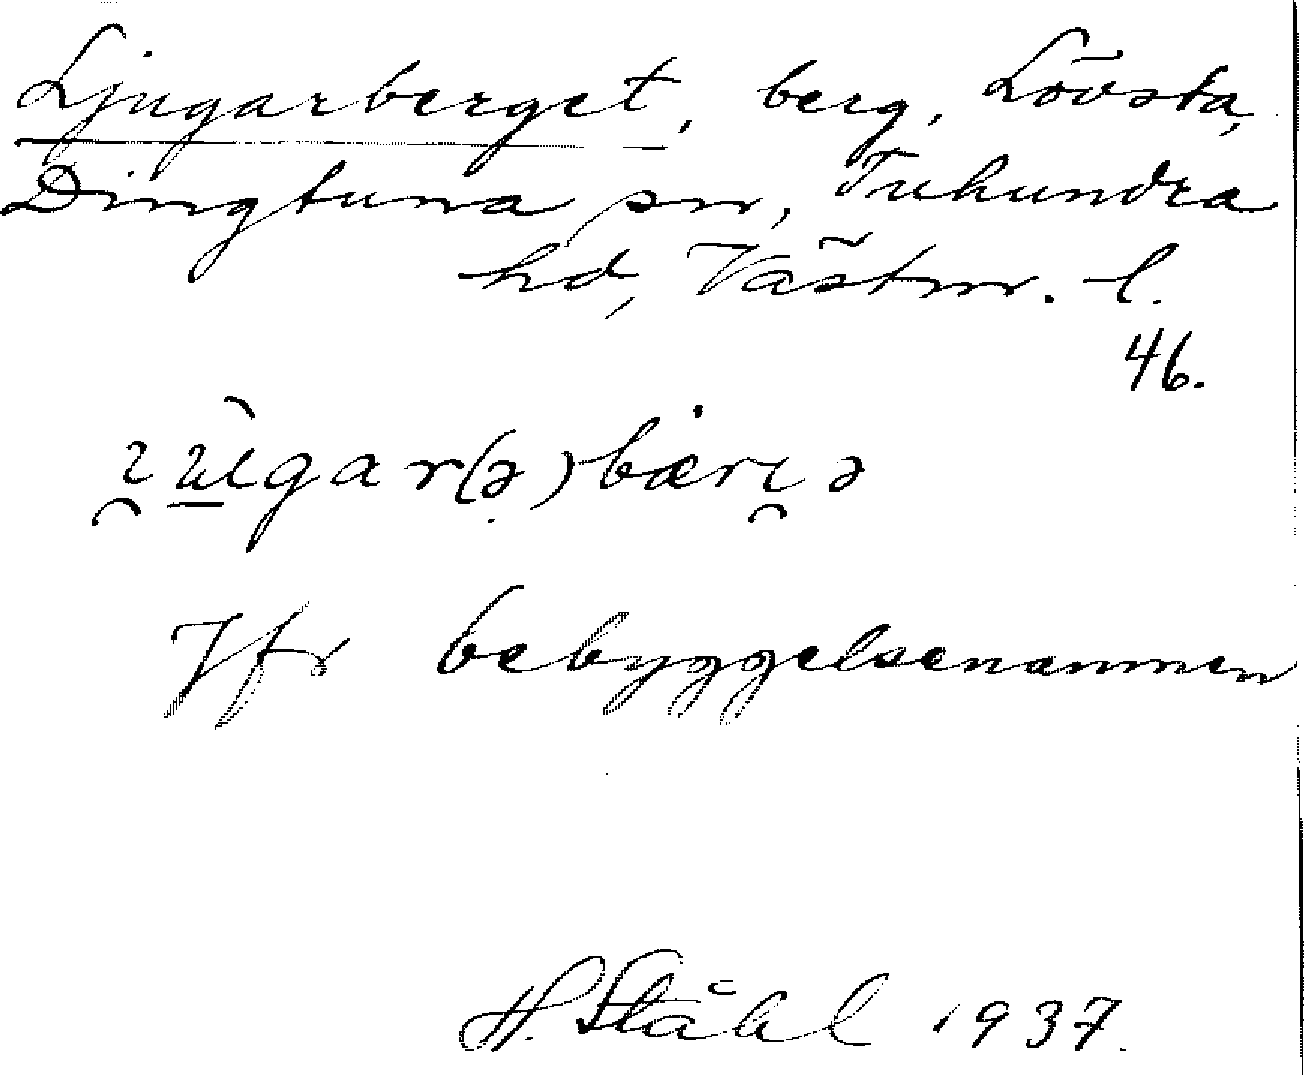 Ljugarberget, berg, Lövsta,
Dingtuna sn, Tuhundra
hd, Västm. l.
46.
Jfr bebyggelsenamnen
H. Ståhl 1937.